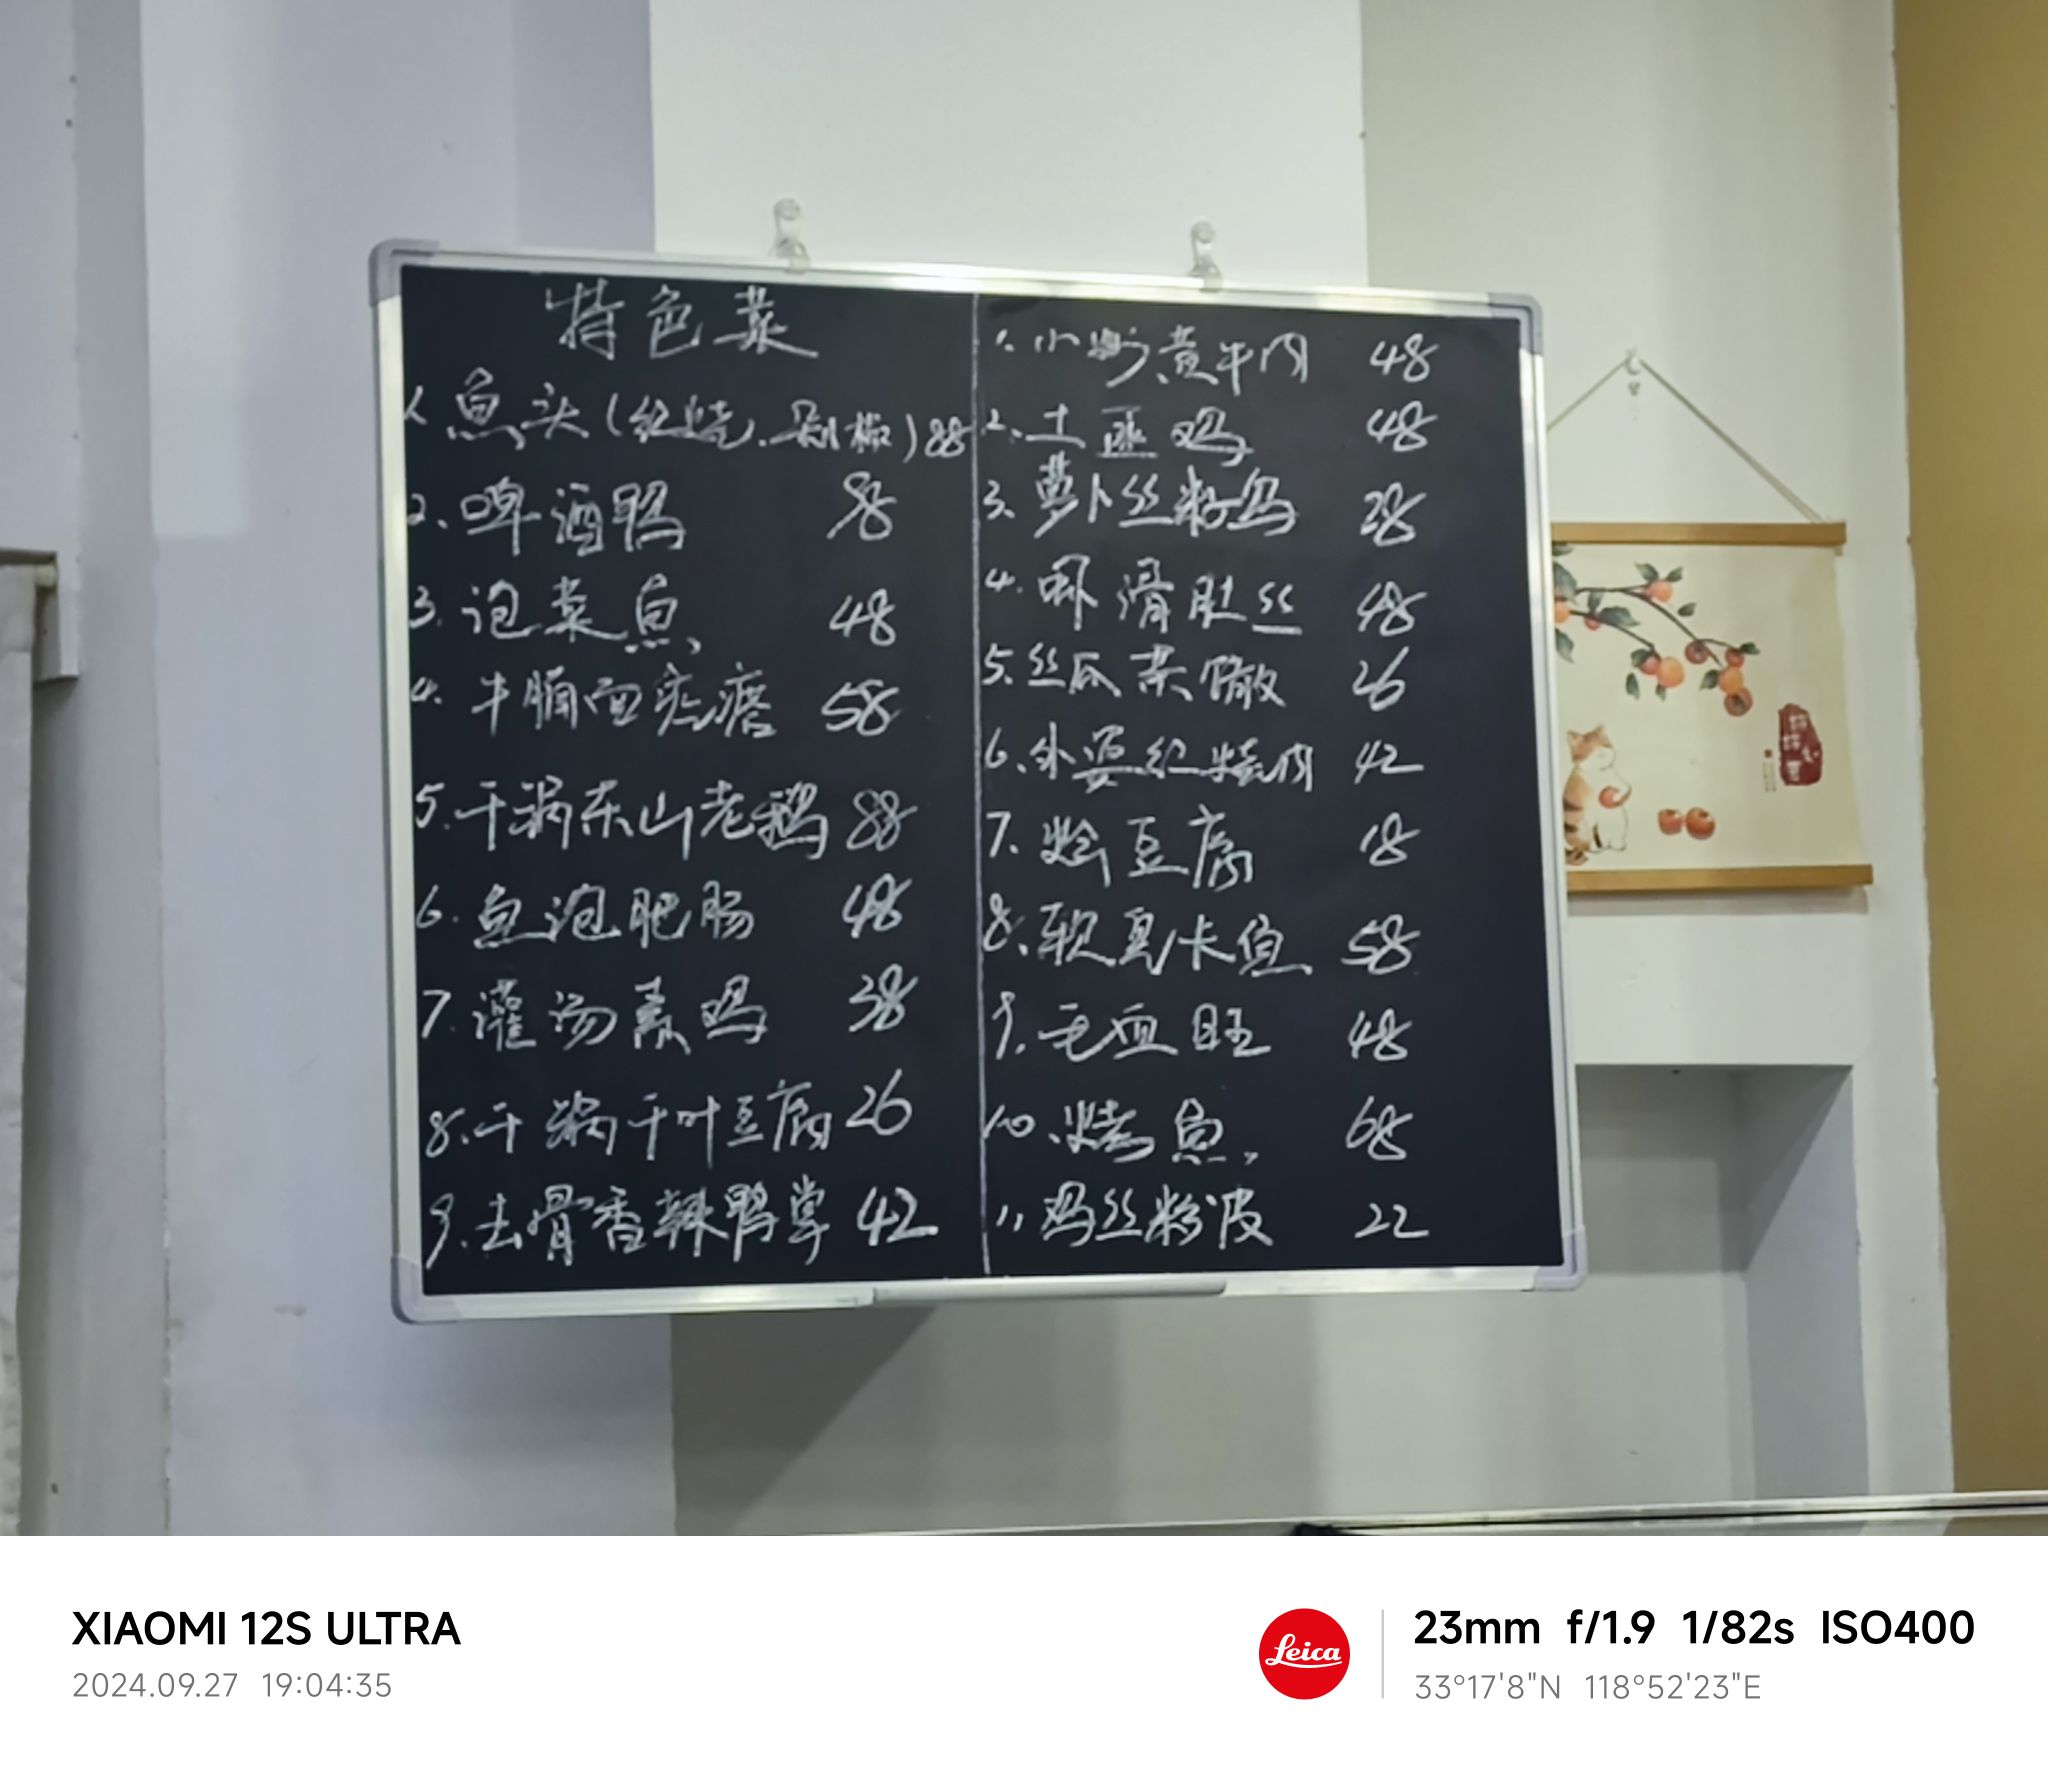 特色菜
1.鱼头(红烧.剁椒)88
2、啤酒鸭
3.泡菜鱼 48
4.牛腩面疙瘩 58
5.干锅东山老鹅 88
6.鱼泡肥肠 48
7.灌汤素鸡 38
8.干锅千叶豆腐 26
9.去骨香辣鸭掌 42
1.小炒黄牛肉 48
2、土匪鸡 48
3、萝卜丝籽乌 28
4.滑肚丝 48
5.丝瓜茶馓 26
6、外婆红烧肉 42
7、烩豆腐 18
8、软兜长鱼 58
9.毛血旺 48
10、烤鱼 68
11鸡丝粉皮 22
XIAOMI 12S ULTRA
2024.09.27 19:04:35
Leica
23mm f/1.9 1/82s ISO400
33°17'8"N 118°52'23"E